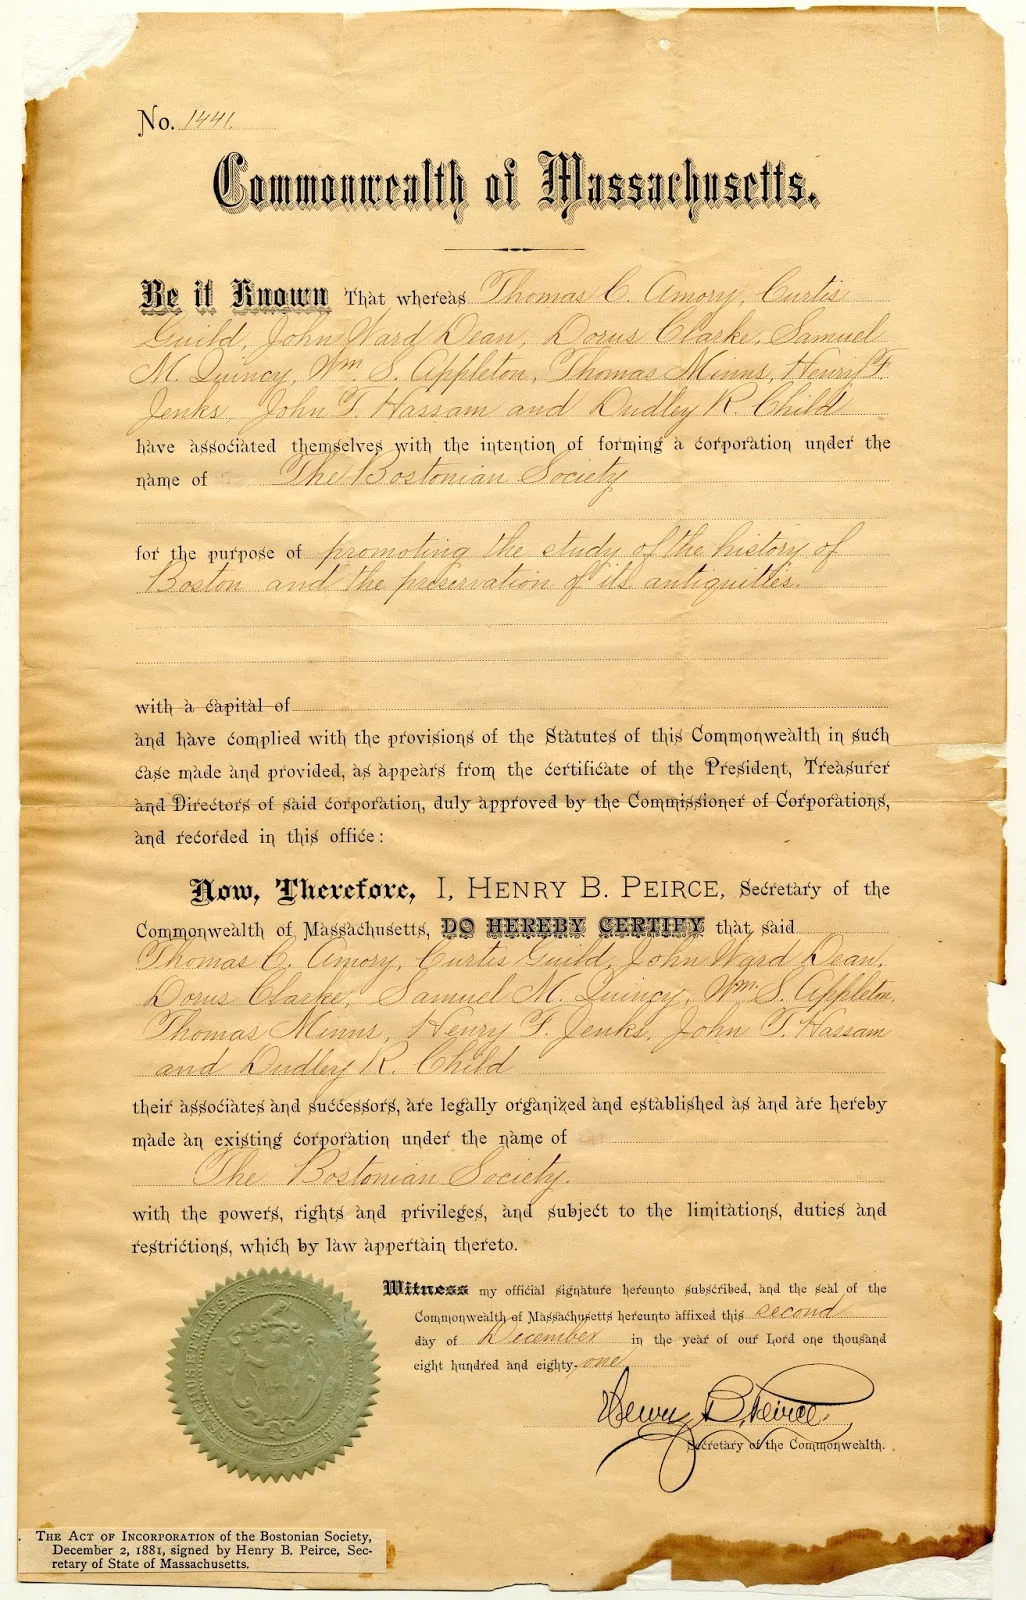 No. 1441.
Commonwealth of Massachusetts.
Be it Known That whereas Thomas C. Amory, Curtis
Guild, John Ward Dean, Dorus Clarke, Samuel
M. Quincy, Wm. S. Appleton, Thomas Minns, Henry F.
Jenks, John T. Hassam and Dudley R. Child
have associated themselves with the intention of forming a corporation under the
name of The Bostonian Society
for the purpose of promoting the study of the history of
Boston and the preservation of its antiquities.
with a capital of
and have complied with the provisions of the Statutes of this Commonwealth in such
case made and provided, as appears from the certificate of the President, Treasurer
and Directors of said corporation, duly approved by the Commissioner of Corporations,
and recorded in this office:
Now, Therefore, I, HENRY B. PEIRCE, Secretary of the
Commonwealth of Massachusetts, DO HEREBY CERTIFY that said
Thomas C. Amory, Curtis Guild, John Ward Dean,
Dorus Clarke, Samuel M. Quincy, Wm. S. Appleton,
Thomas Minns, Henry F. Jenks, John T. Hassam
and Dudley R. Child
their associates and successors, are legally organized and established as and are hereby
made an existing corporation under the name of
The Bostonian Society.
with the powers, rights and privileges, and subject to the limitations, duties and
restrictions, which by law appertain thereto.
Witness my official signature hereunto subscribed, and the seal of the
Commonwealth of Massachusetts hereunto affixed this second
day of December in the year of our Lord one thousand
eight hundred and eighty-one
Henry B. Peirce
Secretary of the Commonwealth.
THE ACT OF INCORPORATION of the Bostonian Society,
December 2, 1881, signed by Henry B. Peirce, Sec-
retary of State of Massachusetts.